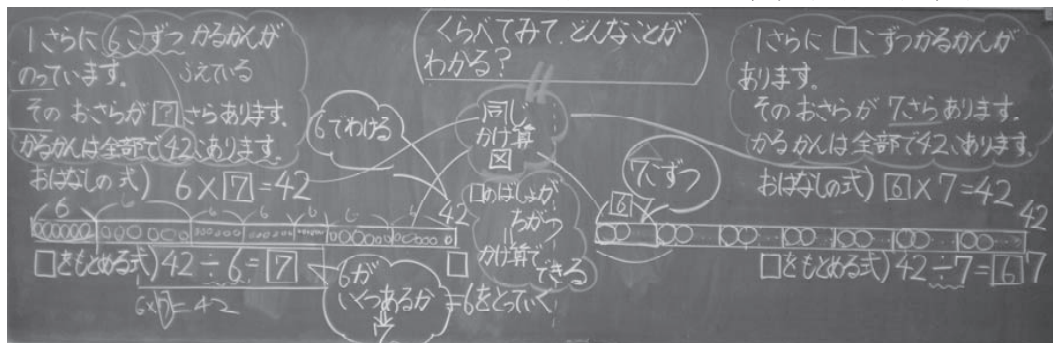 1さらに6こずつ かるかんが
のっています。 ふえている
その おさらが ? さらあります。
かるかんは全部で42こあります。
おはなしの式) 6×7=42
6 6 6 6 6 6 6 42
□をもとめる式) 42÷6=7
6×7=42
6でわける
6が
いくつあるか
7
=6をとっていく
くらべてみて、どんなことが
わかる?
同じ
かけ算
図
□のばしょが
ちがう
かけ算で
できる
7こずつ
1さらに □こずつかるかんが
あります。
その おさらが 7さらあります。
かるかんは全部で42こあります。
おはなしの式) 6×7=42
6
42
□
7
□をもとめる式) 42÷7=6